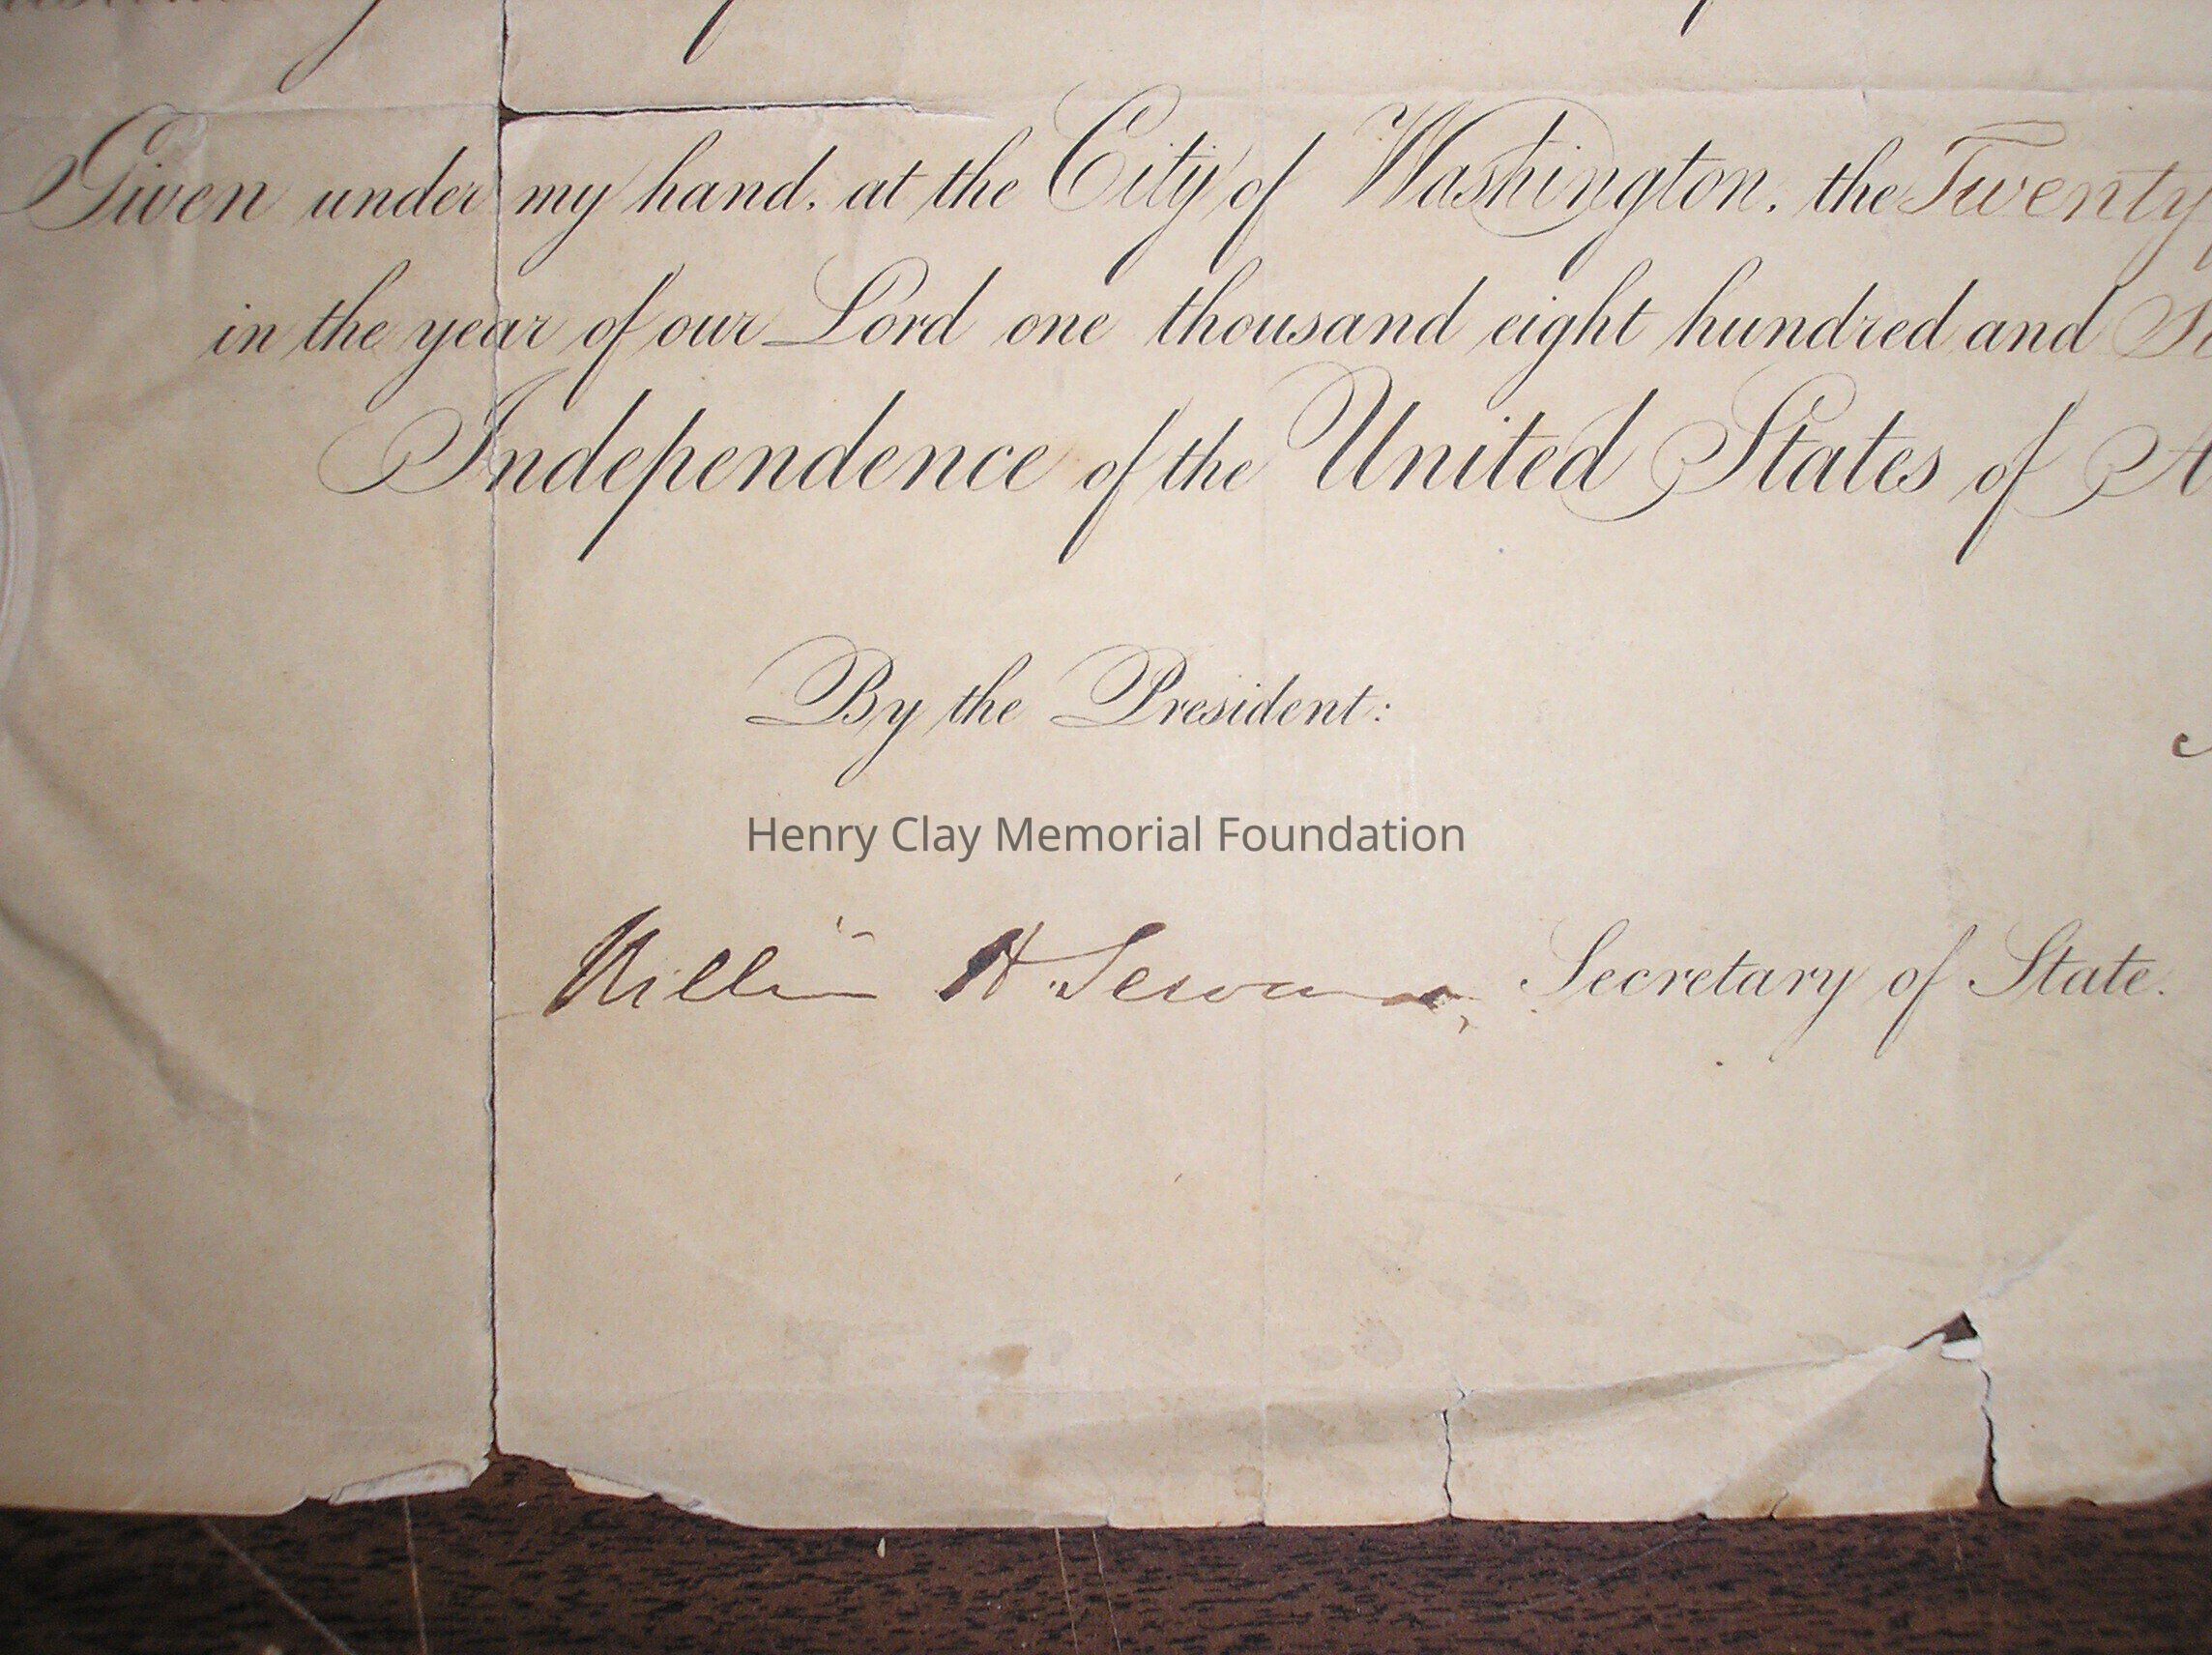 Given under my hand, at the City of Washington, the Twenty
in the year of our Lord one thousand eight hundred and
Independence of the United States of A
By the President:
Henry Clay Memorial Foundation
William H. Seward, Secretary of State.